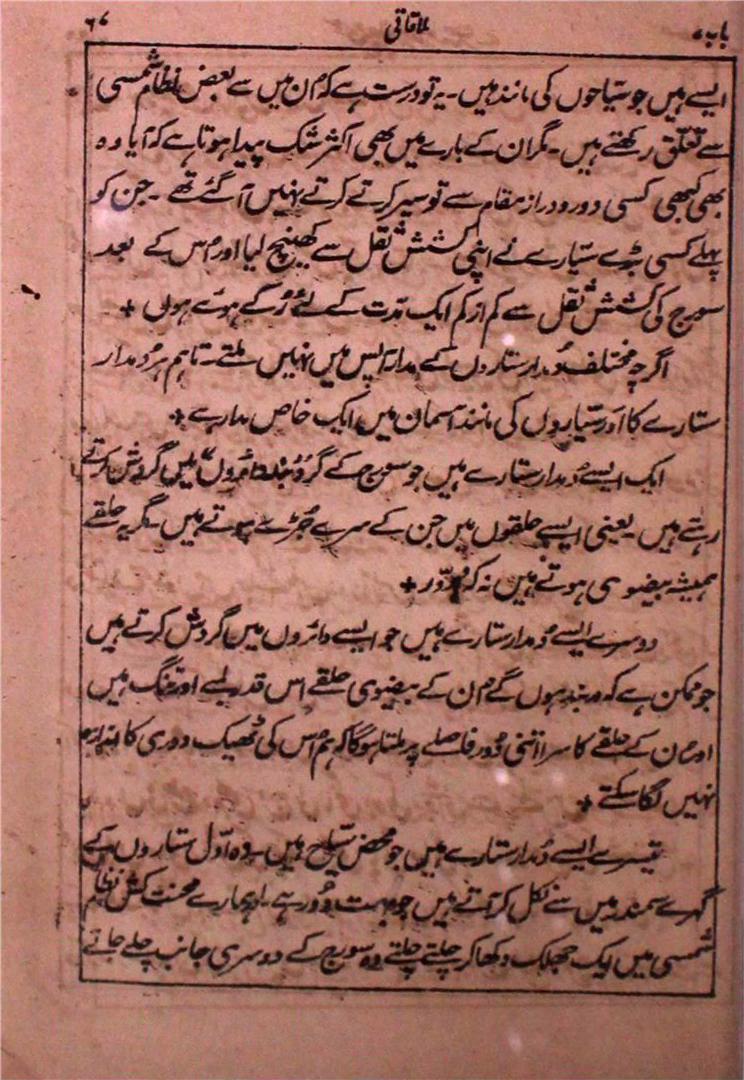 باب ۷ ملاقاتی ۶۷
ایسے ہیں جو سیّاحوں کی مانند ہیں۔ یہ تو درست ہے کہ اُن میں سے بعض نظام شمسی
سے تعلّق رکھتے ہیں۔ مگر ان کے بارے میں بھی اکثر شک پیدا ہوتا ہے کہ آیا وہ
بھی کبھی کسی دور و دراز مقام سے تو سیر کرتے کرتے نہیں آ گئے تھے۔ جن کو
پہلے کسی بڑے ستیارے نے اپنی کشش ثقل سے کھینچ لیا اور اُس کے بعد
سورج کی کشش ثقل سے کم از کم ایک مدّت کے لئے رُکے ہوئے ہوں +
اگرچہ مختلف دُمدار ستاروں کے مدار آپس میں نہیں ملتے۔ تاہم ہر دُمدار
ستارے کا اَور ستیاروں کی مانند آسمان میں ایک خاص مدار ہے +
ایک ایسے دُمدار ستارے ہیں جو سورج کے گرد بند دائروں میں گردش کرتے
رہتے ہیں۔ یعنی ایسے حلقوں میں جن کے سرے جُڑے ہوتے ہیں۔ مگر یہ حلقے
ہمیشہ بیضوی ہوتے ہیں نہ کہ مُدوّر +
دوسرے ایسے دُمدار ستارے ہیں جو ایسے دائروں میں گردش کرتے ہیں
جو ممکن ہے کہ بند ہوں گے اُن کے بیضوی حلقے اس قدر لمبے اور تنگ ہیں
اور اُن کے حلقے کا سرا اتنی دُور فاصلے پر ملتا ہوگا کہ ہم اُس کی ٹھیک دوری کا اندازہ
نہیں لگا سکتے +
تیسرے ایسے دُمدار ستارے ہیں جو محض سیّاح ہیں۔ وہ اوّل ستاروں کے
گہرے سمندر میں سے نکل کر آتے ہیں جو بہت دُور ہے۔ اور ہمارے محنت کش نظام
شمسی میں ایک جھلک دکھا کر چلتے چلتے وہ سورج کے دوسری جانب چلے جاتے